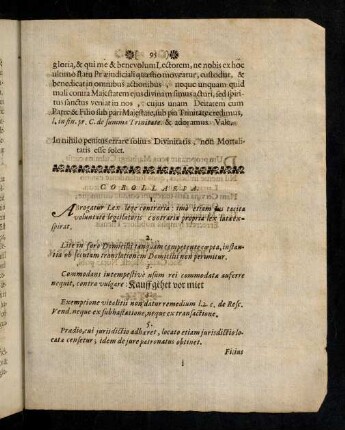 93
gloria, & qui me & benevolum Lectorem, ne nobis ex hoc
ultimo stam Præjudiciali quæstio moveatur, custodiat, &
benedicat in omnibus actionibus, neque unquam quid
mali contra Majestatem ejus divinam simus acturi, sed spiri-
tus sanctus veniat in nos, cujus unam Deitatem cum
Patre & Filio sub pari Majestate, sub pia Trinitate credimus,
l. in fin. pr. C. de summa Trinitate. & adoramus. Vale.
In nihilo penitus errare solius Divinitatis, non Mortali-
tatis esse solet.
COROLLARIA.
1.
Abrogatur Lex lege contraria: imo etiam tacita
voluntate legislatoris contraria propria lex
spirat.
2.
Lite in foro Domicilii tanquam competente cœpta, instan-
tia ob secutam translationem Domicilii non perimitur.
3.
Commodans intempestivè usum rei commodatæ auferre
nequit, contra vulgare: Kauff gehet vor miet
4.
Exemptione vitalitii non datur remedium l. 2. c. de Resc.
Vend. neque ex subhastatione, neque ex transactione.
5.
Prædio, cui jurisdictio adhæret, locato etiam jurisdictio lo-
cata censetur; idem de jure patronatus obtinet.
Fictus